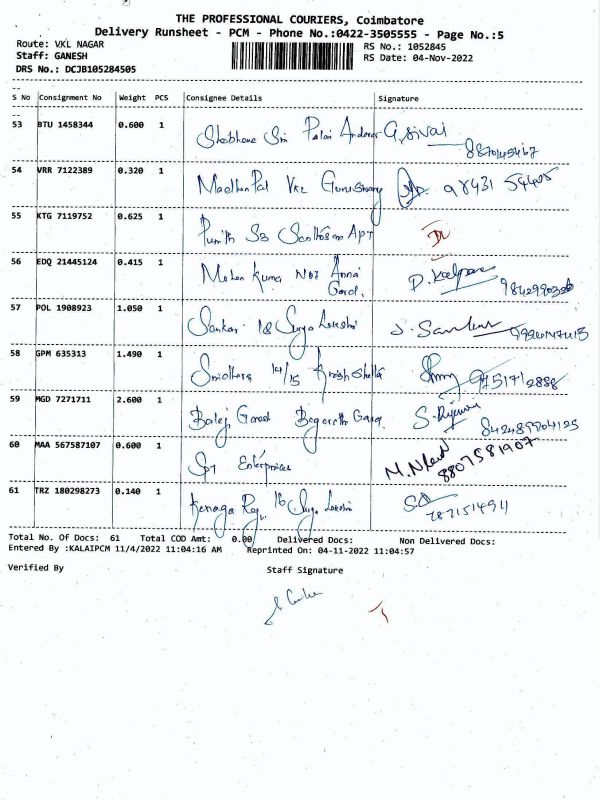 THE PROFESSIONAL COURIERS, Coimbatore
Delivery Runsheet - PCM - Phone No.:0422-3505555 - Page No.:5
Route: VKL NAGAR
RS No.: 1052845
Staff: GANESH
RS Date: 04-Nov-2022
DRS No.: DCJB105284505
S No Consignment No Weight PCS Consignee Details Signature
53 BTU 1458344 0.600 1 Sri Palani G. Sivai
8870145467
54 VRR 7122389 0.320 1 VKL 98431 54405
55 KTG 7119752 0.625 1 S3 Santhosam APT
56 EDQ 21445124 0.415 1 Mohan Kumar No7 Anna
D. Kalpana
57 POL 1908923 1.050 1 Sankar 18 Surya J. Sankar
58 GPM 635313 1.490 1 14/15 9751712888
59 MGD 7271711 2.600 1 Balaji Ganesh
60 MAA 567587107 0.600 1 Enterprises 8807581907
61 TRZ 180298273 0.140 1 Kanaga Raj 16 Surya
7871514911
Total No. Of Docs: 61 Total COD Amt: 0.00 Delivered Docs: Non Delivered Docs:
Entered By :KALAIPCM 11/4/2022 11:04:16 AM Reprinted On: 04-11-2022 11:04:57
Verified By Staff Signature